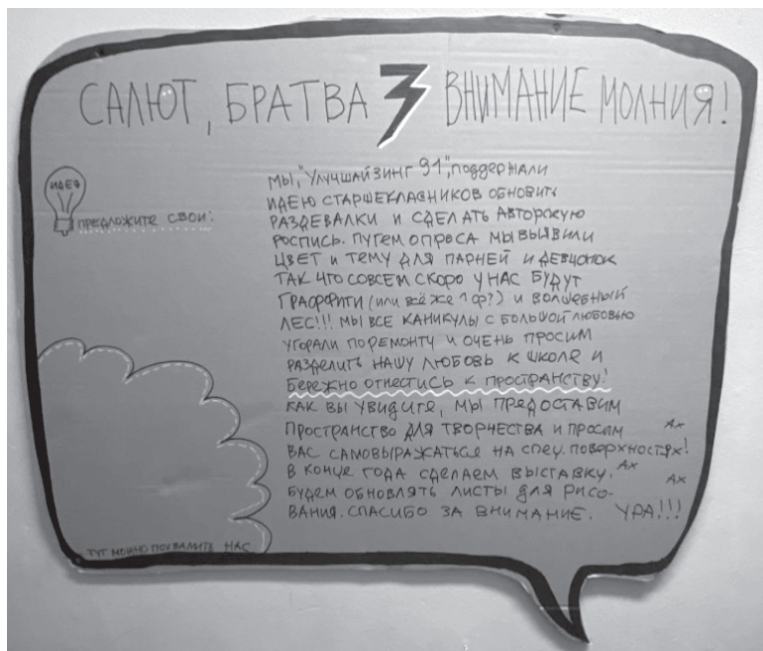 САЛЮТ, БРАТВА ВНИМАНИЕ МОЛНИЯ!
ИДЕЯ
ПРЕДЛОЖИТЕ СВОИ:
МЫ, "УЛУЧШАЙЗИНГ 91", поддержали
ИДЕЮ СТАРШЕКЛАСНИКОВ ОБНОВИТЬ
РАЗДЕВАЛКИ И СДЕЛАТЬ АВТОРСКУЮ
РОСПИСЬ. ПУТЕМ ОПРОСА МЫ ВЫЯВИЛИ
ЦВЕТ И ТЕМУ ДЛЯ ПАРНЕЙ И ДЕВЧОНОК
ТАК ЧТО СОВСЕМ СКОРО У НАС БУДУТ
ГРАФФИТИ (ИЛИ ВСЁ ЖЕ 1 Ф?) И ВОЛШЕБНЫЙ
ЛЕС!!! МЫ ВСЕ КАНИКУЛЫ С БОЛЬШОЙ ЛЮБОВЬЮ
УГОРАЛИ ПО РЕМОНТУ И ОЧЕНЬ ПРОСИМ
РАЗДЕЛИТЬ НАШУ ЛЮБОВЬ К ШКОЛЕ И
БЕРЕЖНО ОТНЕСТИСЬ К ПРОСТРАНСТВУ!
КАК ВЫ УВИДИТЕ, МЫ ПРЕДОСТАВИМ
ПРОСТРАНСТВО ДЛЯ ТВОРЧЕСТВА И ПРОСИМ АХ
ВАС САМОВЫРАЖАТЬСЯ НА СПЕЦ. ПОВЕРХНОСТЯХ!
В КОНЦЕ ГОДА СДЕЛАЕМ ВЫСТАВКУ. АХ АХ
БУДЕМ ОБНОВЛЯТЬ ЛИСТЫ ДЛЯ РИСО-
ВАНИЯ. СПАСИБО ЗА ВНИМАНИЕ. УРА!!!
ТУТ МОЖНО ПОХВАЛИТЬ НАС